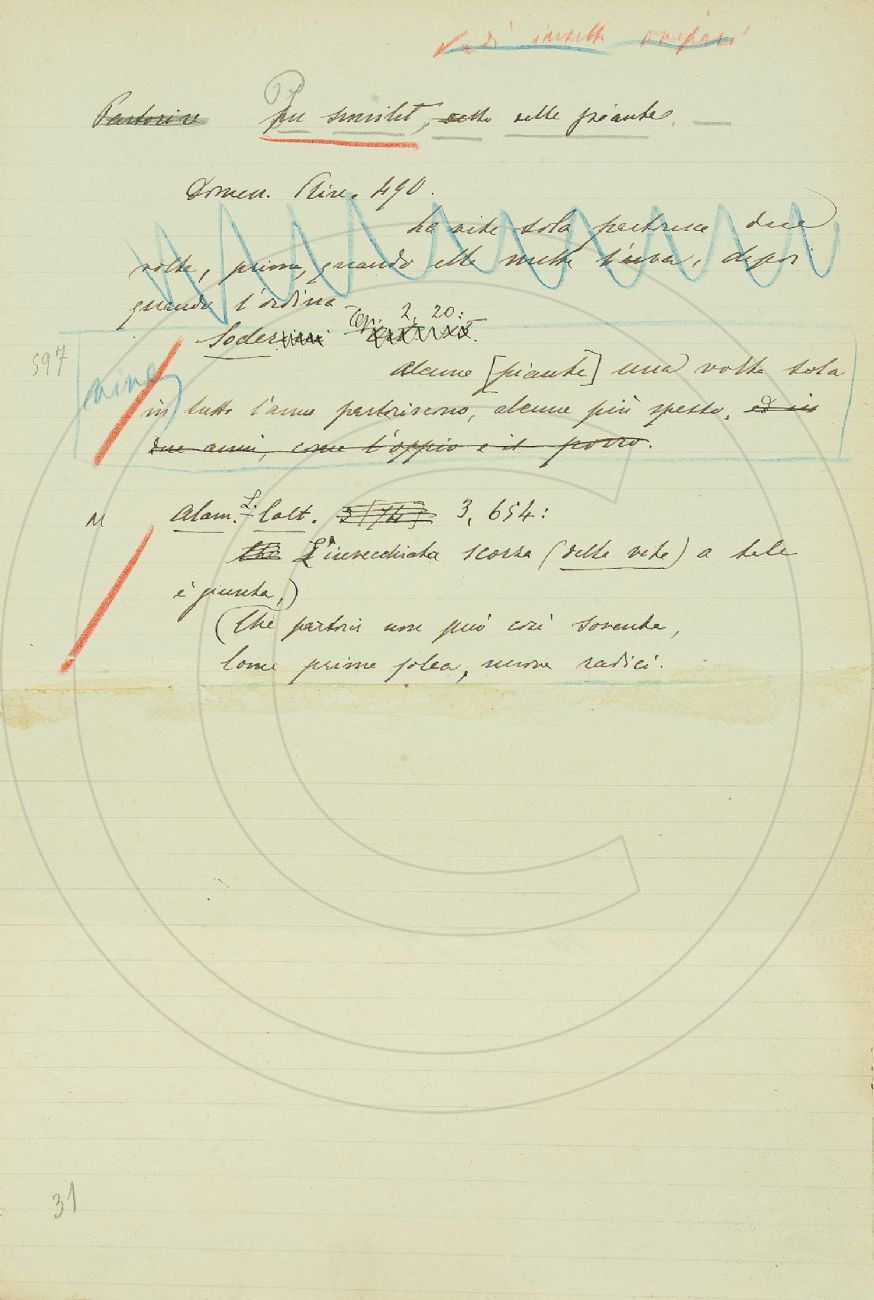 Vedi insetti
Partorire Per similit., detto delle piante.
Domen. Rire. 490.
La vite sola partorisce due
volte, prima, quando ella mette l'uva, depoi
quando l'ordina
Soderini 2, 20:
597 Alcune [piante] una volta sola
in tutto l'anno partoriscono, alcune più spesso, ed in
due anni, come l'oppio e il porro.
M Alam. L. Colt. 3, 654:
Che L'invecchiata scorza (della vite) a tale
è giunta,)
(Che partorir non può così sovente,
Come prima solea, nuove radici.
31